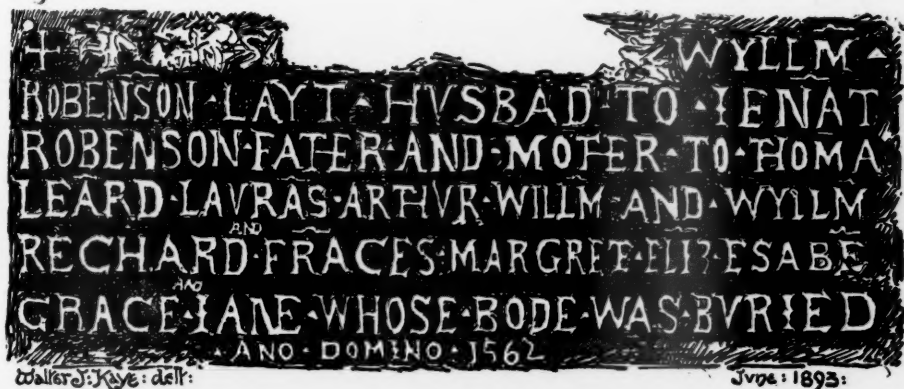 + WYLLM̄
ROBENSON · LAYT · HVSBAD · TO · IENAT
ROBENSON · FATER · AND · MOTER · TO · THOMA
LEARD · LAVRAS · ARTHVR · WILLM̄ · AND · WYLLM̄
RECHARD · AND · FRACES · MARGRET · ESABE
GRACE · AND · IANE · WHOSE · BODE · WAS · BVRIED
· ANO · DOMINO · 1562
Walter J: Kaye: delt: June: 1893: